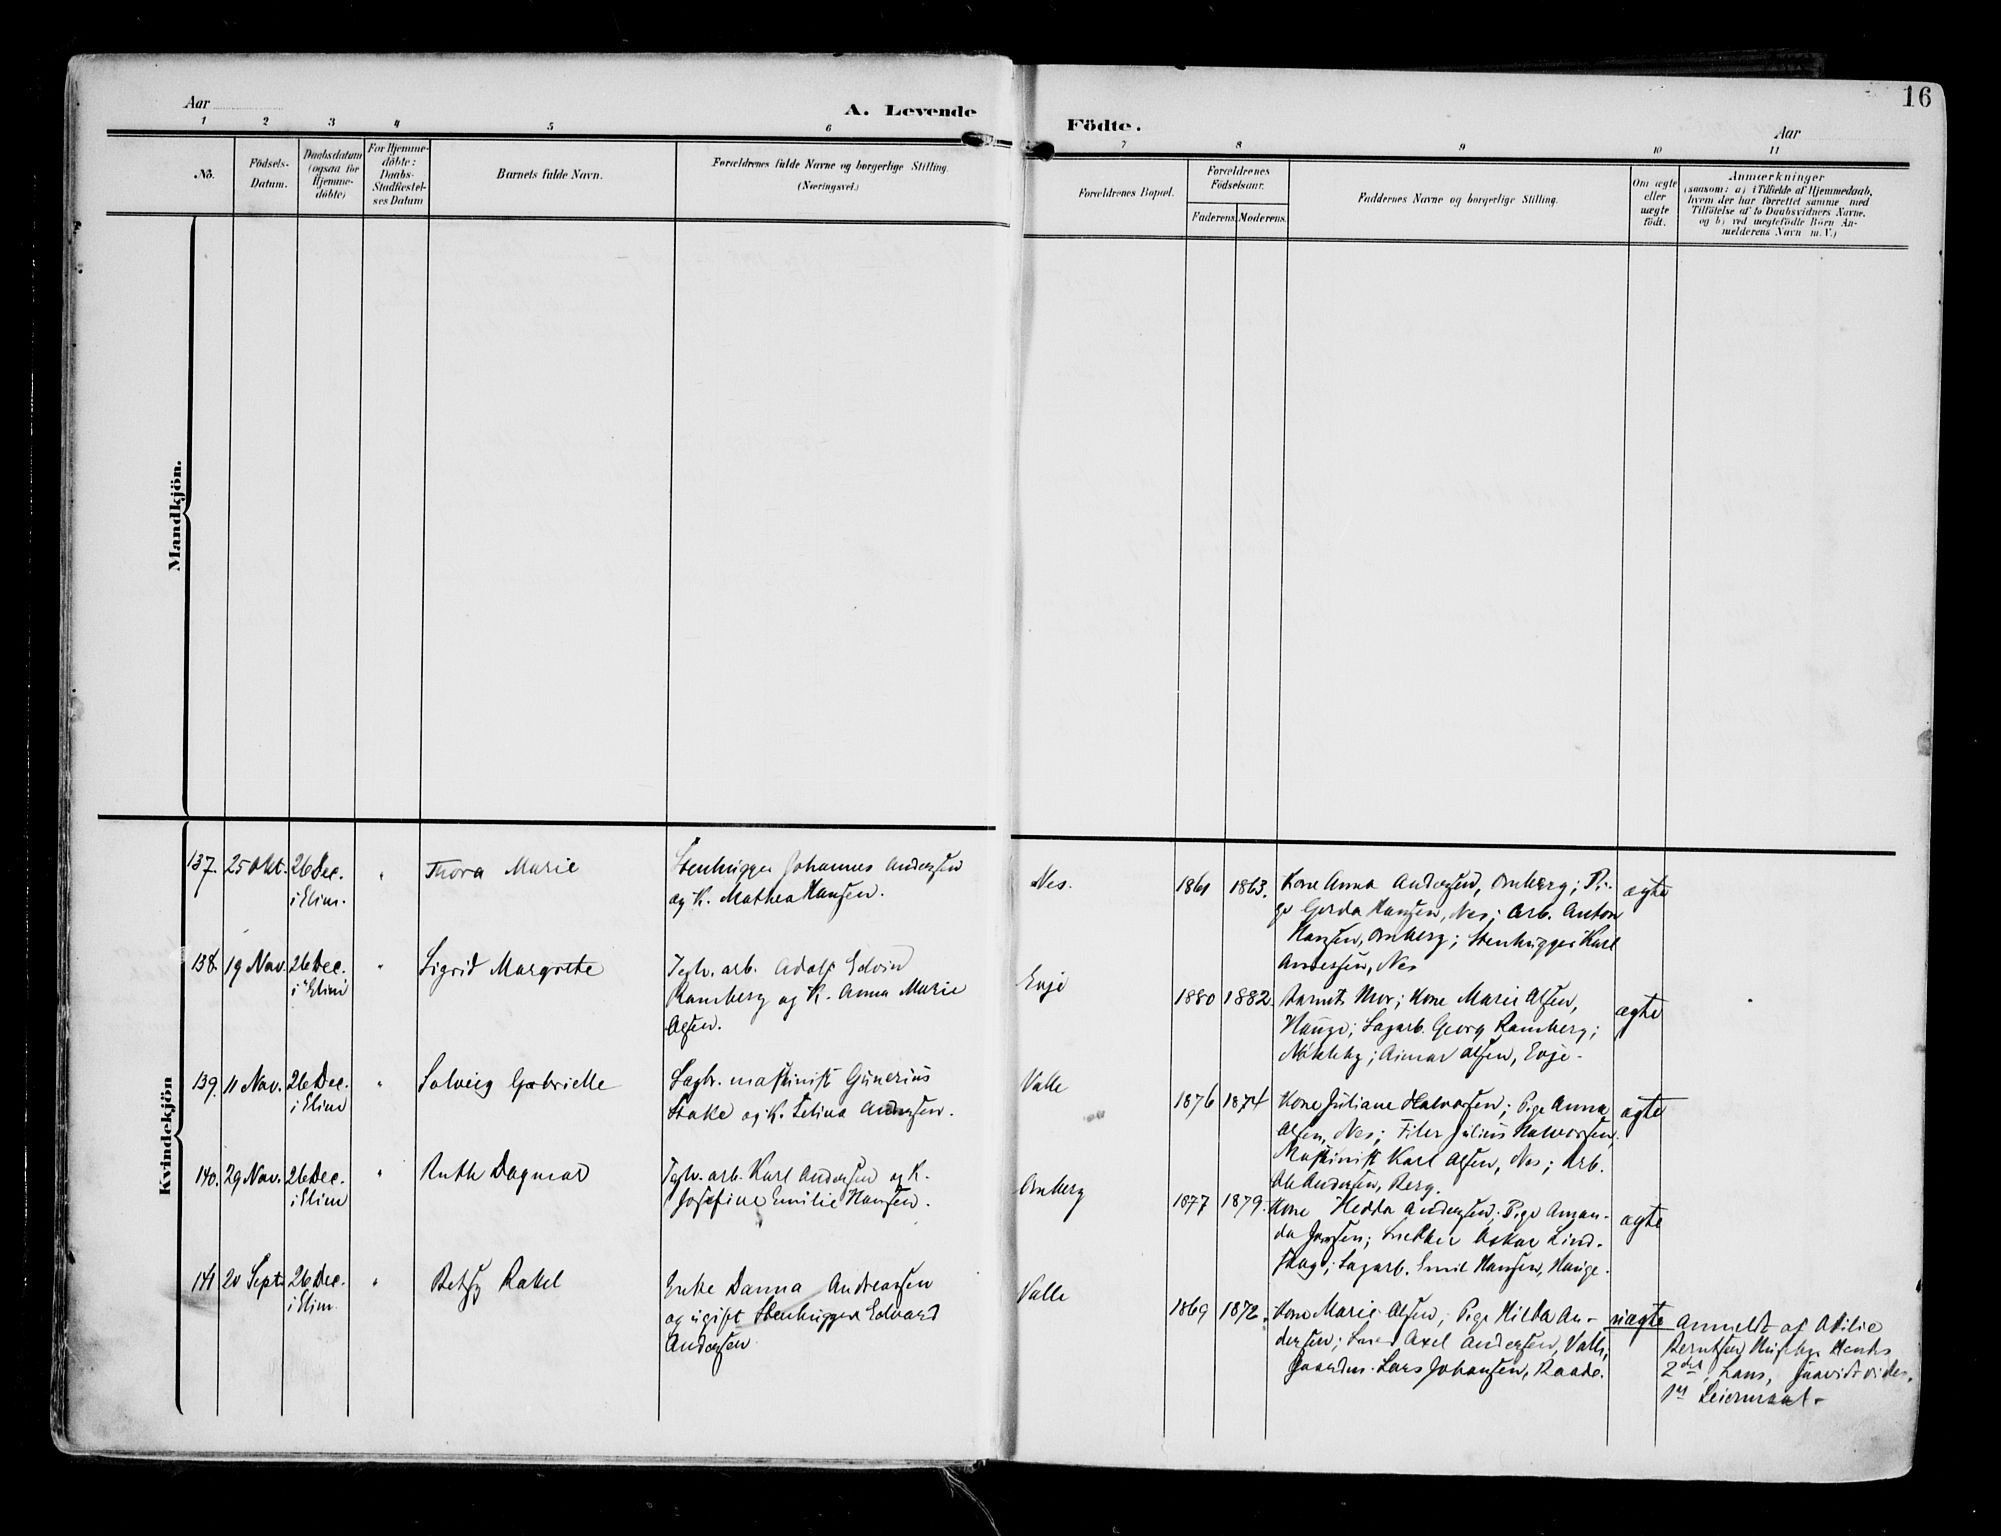 16
Aar
A. Levende
Födte.
Aar
1 2 3 4 5 6 7 8 9 10 11
No.
Födsels-
Datum.
Daabsdatum
(ogsaa for
Hjemme-
döbte)
For Hjemme-
döbte:
Daabs-
Stadfæstel-
ses Datum
Barnets fulde Navn.
Forældrenes fulde Navne og borgerlige Stilling.
(Næringsvei.)
Forældrenes Bopæl.
Forældrenes
Födselsaar.
Faderens.
Moderens.
Faddernes Navne og borgerlige Stilling.
Om ægte
eller
uægte
födt.
Anmærkninger
(saasom: a) i Tilfælde af Hjemmedaab,
hvem der har forrettet samme med
Tilföielse af to Daabsvidners Navne.
og b) ved uægtefödte Börn An-
melderens Navn m. V.)
Mandkjön.
Kvindekjön
137. 25 Okt. 26 Dec.
i Elim.
" Thora Marie
Stenhugger Johannes Andersen
og K. Mathea Hansen.
Nes.
1861 1863.
Kone Anna Andersen, Omberg; Pi-
ge Gerda Hansen, Nes; Arb. Anton
Hansen, Omberg; Stenhugger Karl
Andersen, Nes
ægte
138. 19 Nov. 26 Dec.
i Elim
" Sigrid Margrete
Teglv. arb. Adolf Edvin
Ramberg og K. Anna Marie
Olsen.
Evje
1880 1882
Barnets Mor; Kone Marie Olsen,
Hauge; Sagarb. Georg Ramberg;
Nökleby; Aimar Olsen, Evje.
ægte
139. 11 Nov. 26 Dec.
i Elim
" Solveig Gabrielle
Sagbr. maskinist Gunerius
Stake og K. Selina Andersen.
Valle
1876 1874
Kone Juliane Halvorsen; Pige Anna
Olsen, Nes; Filer Julius Halvorsen,
Maskinist Karl Olsen, Nes; Arb.
Ole Andersen, Berg.
ægte
140. 29 Nov. 26 Dec.
i Elim
" Ruth Dagmar
Teglv. arb. Karl Andersen og K.
Josefine Emilie Hansen.
Omberg
1877 1879.
Kone Hedda Andersen; Pige Aman-
da Jansen; Snekker Oskar Lind-
skog; Sagarb. Emil Hansen, Hauge.
ægte
141 20 Sept. 26 Dec.
i Elim.
" Betsy Rakel
Enke Danna Andreasen
og ugift Stenhugger Edvard
Andersen
Valle
1869 1872.
Kone Marie Olsen; Pige Hilda An-
dersen; Smed Axel Andersen, Valle;
Gaardbr. Lars Johansen, Raade.
uægte
Anmeldt af Otilie
Berntsen
2det Hans,
1st Leiermaal.